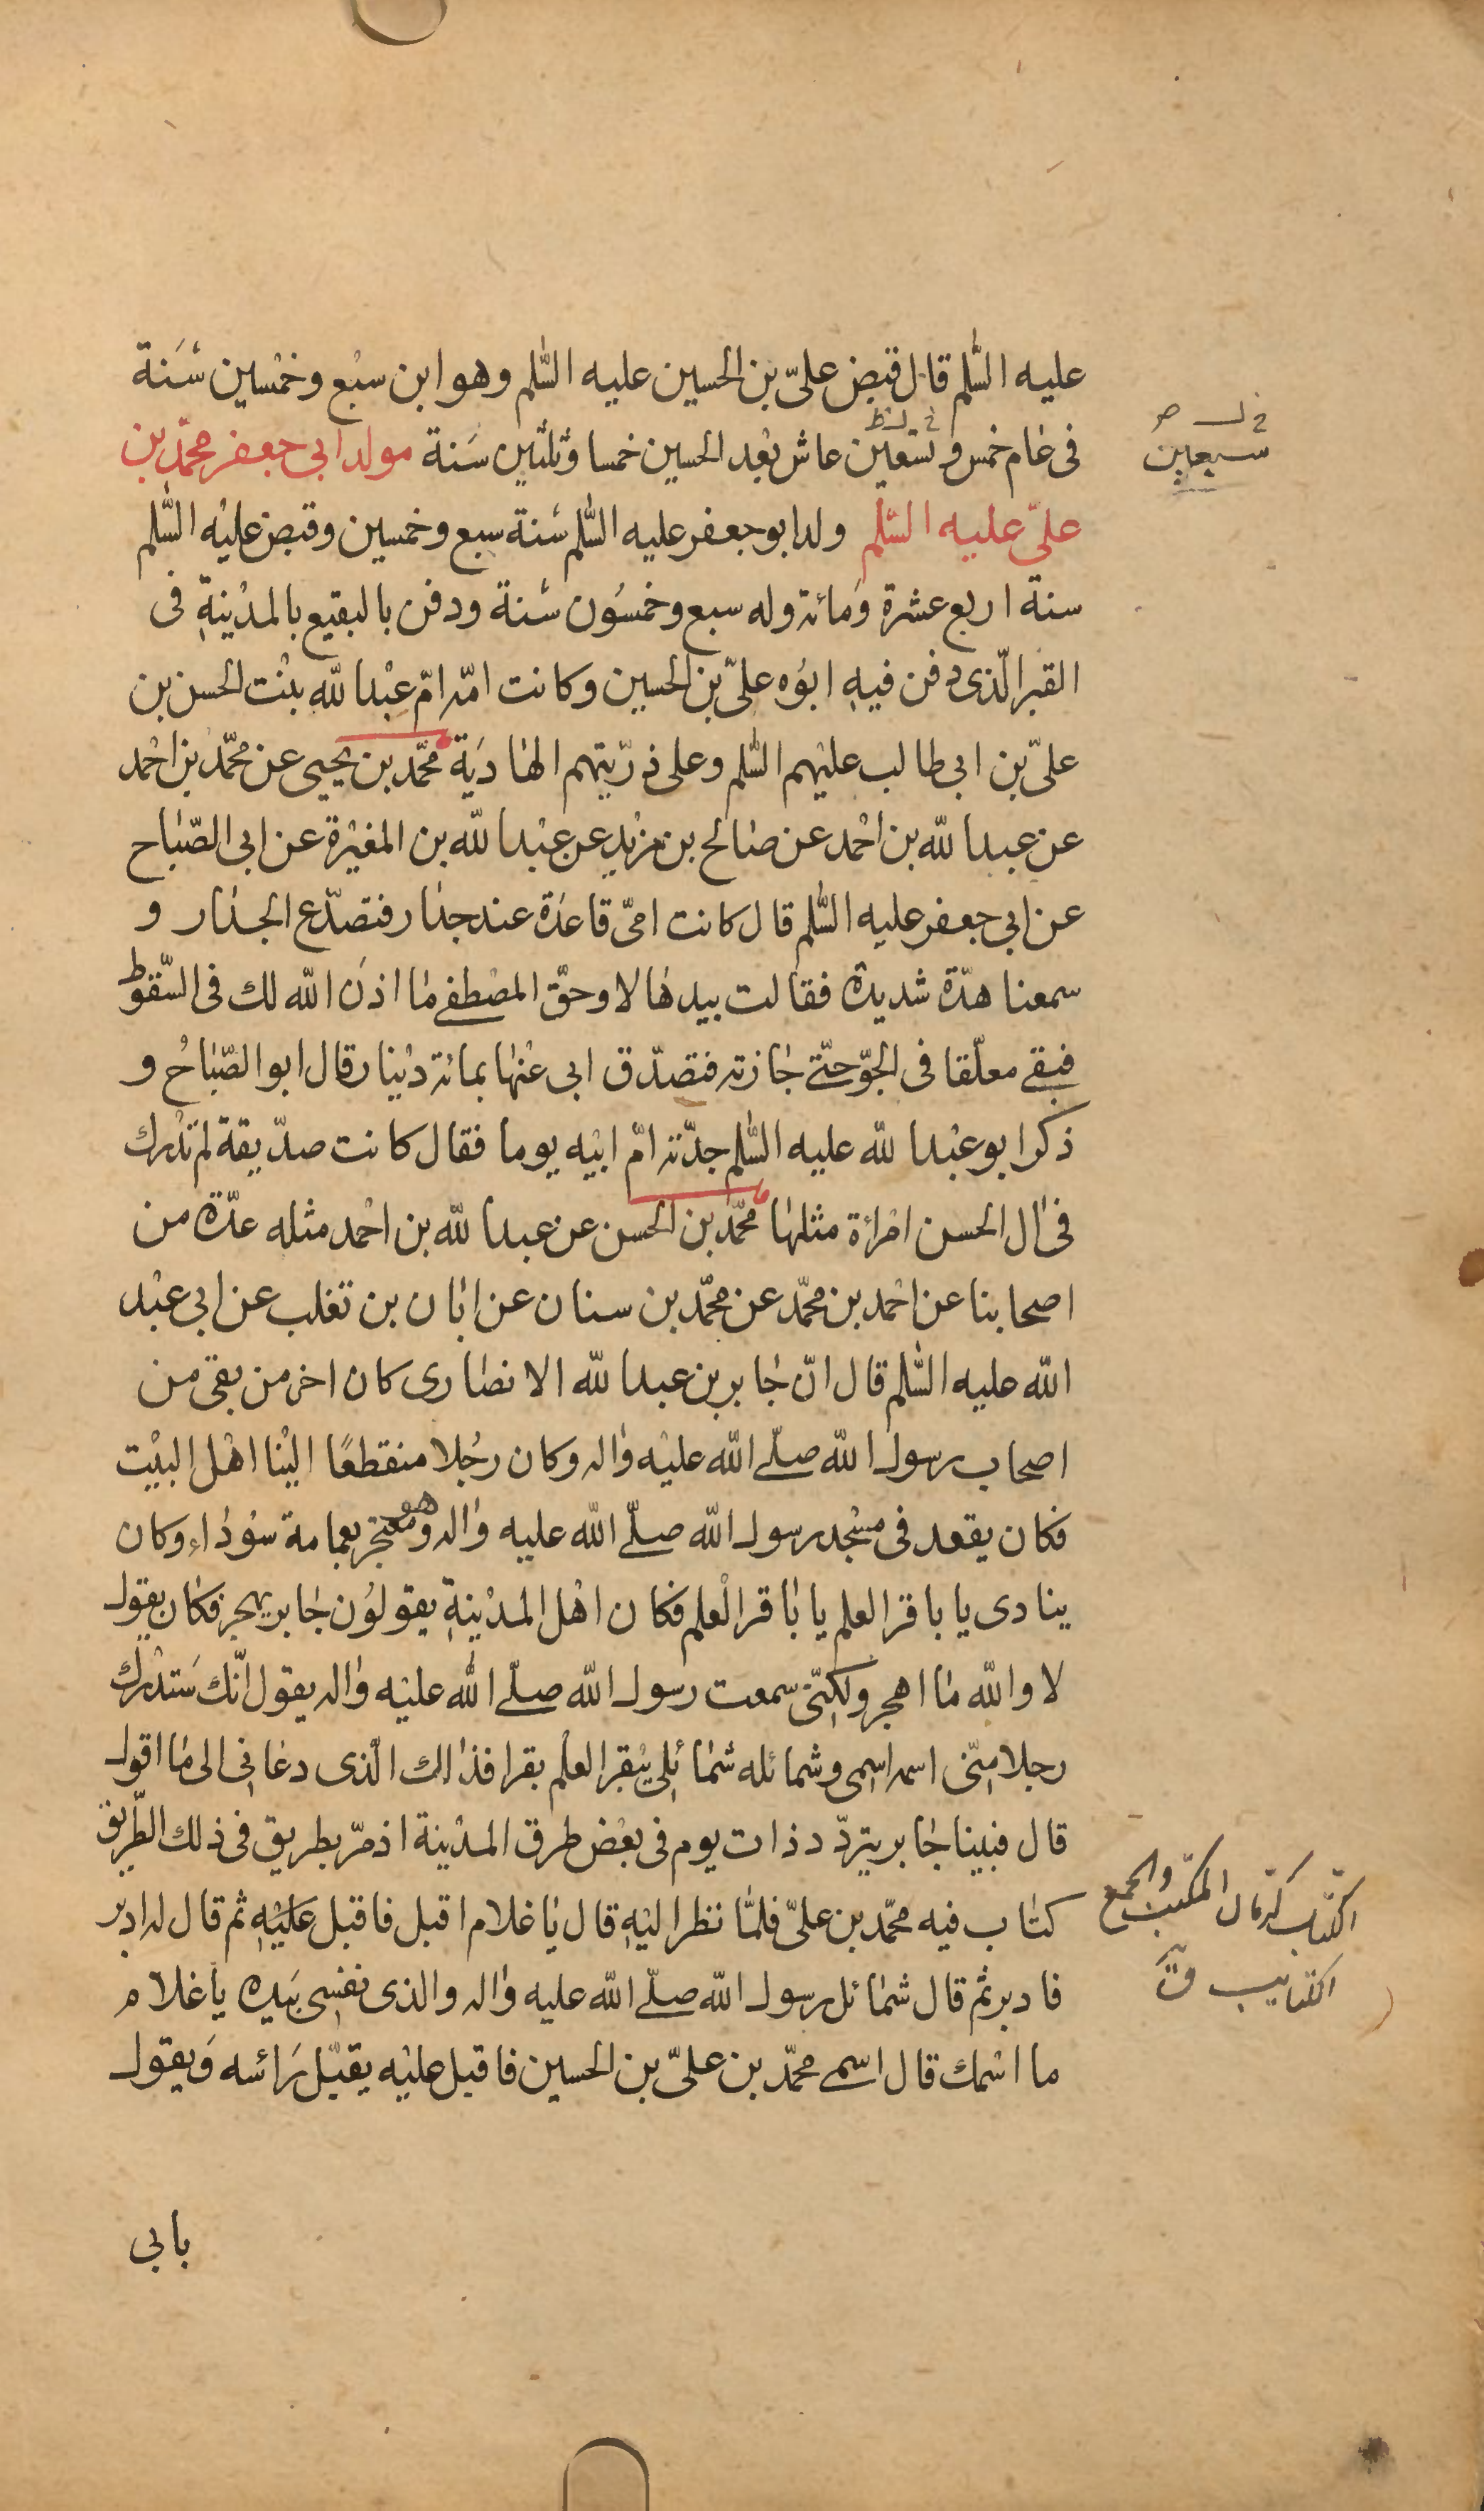 عليه السّلم قال قبض علىّ بن الحسين عليه السّلم وهو ابن سبع وخمسين سَنة
فى عام خمس و تسعين عاش بعد الحسين خمسا وثلثين سَنة مولد ابى جعفر محمّد بن
سبعين
علىّ عليه السّلم ولد ابو جعفر عليه السّلم سَنة سبع وخمسين وقبض عليه السّلم
سنة اربع عشرة ومائة وله سبع وخمسُون سَنة ودفن بالبقيع بالمدينة فى
القبر الّذى دفن فيه ابوُه علىّ بن الحسين وكانت امّه امّ عبد الله بنت الحسن بن
علىّ بن ابى طالب عليهم السّلم وعلى ذرّيتهم الهاديَة محمّد بن يحيى عن محمّد بن احمد
عن عبد الله بن احمد عن صالح بن مزيد عن عبد الله بن المغيرة عن ابى الصّباح
عن ابى جعفر عليه السّلم قال كانت امّى قاعدة عند جدار فتصدّع الجدار و
سمعنا هدّة شديدة فقالت بيدها لا وحقّ المصطفى ما اذن الله لك فى السّقوط
فبقى معلّقا فى الجوّ حتّى جازته فتصدّق ابى عنها بمائة دينار قال ابو الصّباحُ و
ذكر ابو عبد الله عليه السّلم جدّته امّ ابيه يوما فقال كانت صدّيقة لم تدرك
فى ال الحسن امرأة مثلها محمّد بن الحسن عن عبد الله بن احمد مثله عدّة من
اصحابنا عن احمد بن محمّد عن محمّد بن سنان عن ابان بن تغلب عن ابى عبد
الله عليه السّلم قال انّ جابر بن عبد الله الانصارى كان اخر من بقى من
اصحاب رسول الله صلّى الله عليه واله وكان رجُلا منقطعًا الينا اهل البيت
فكان يقعد فى مسجد رسول الله صلّى الله عليه واله وهو معتجر بعمامة سوُداء وكان
ينادى يا باقر العلم يا باقر العلم فكان اهل المدينة يقولوُن جابر يهجر فكان يقول
لا والله ما اهجر ولكنّى سمعت رسول الله صلّى الله عليه واله يقول انّك سَتدرك
رجلا منّى اسمه اسمى وشمائله شمائلى يبقر العلم بقرا فذاك الّذى دعانى الى ما اقول
قال فبينا جابر يتردّد ذات يوم فى بعض طرق المدينة اذ مرّ بطريق فى ذلك الطّريق
كتاب فيه محمّد بن علىّ فلمّا نظر اليه قال يا غلام اقبل فاقبل عليه ثم قال له ادبر
الكتّاب كرمان المكتب والجمع
الكتاتيب ق
فادبر ثم قال شمائل رسول الله صلّى الله عليه واله والذى نفسى بيَده يا غلام
ما اسمك قال اسمى محمّد بن علىّ بن الحسين فاقبل عليه يقبّل رَائسه وَيقول
بابى